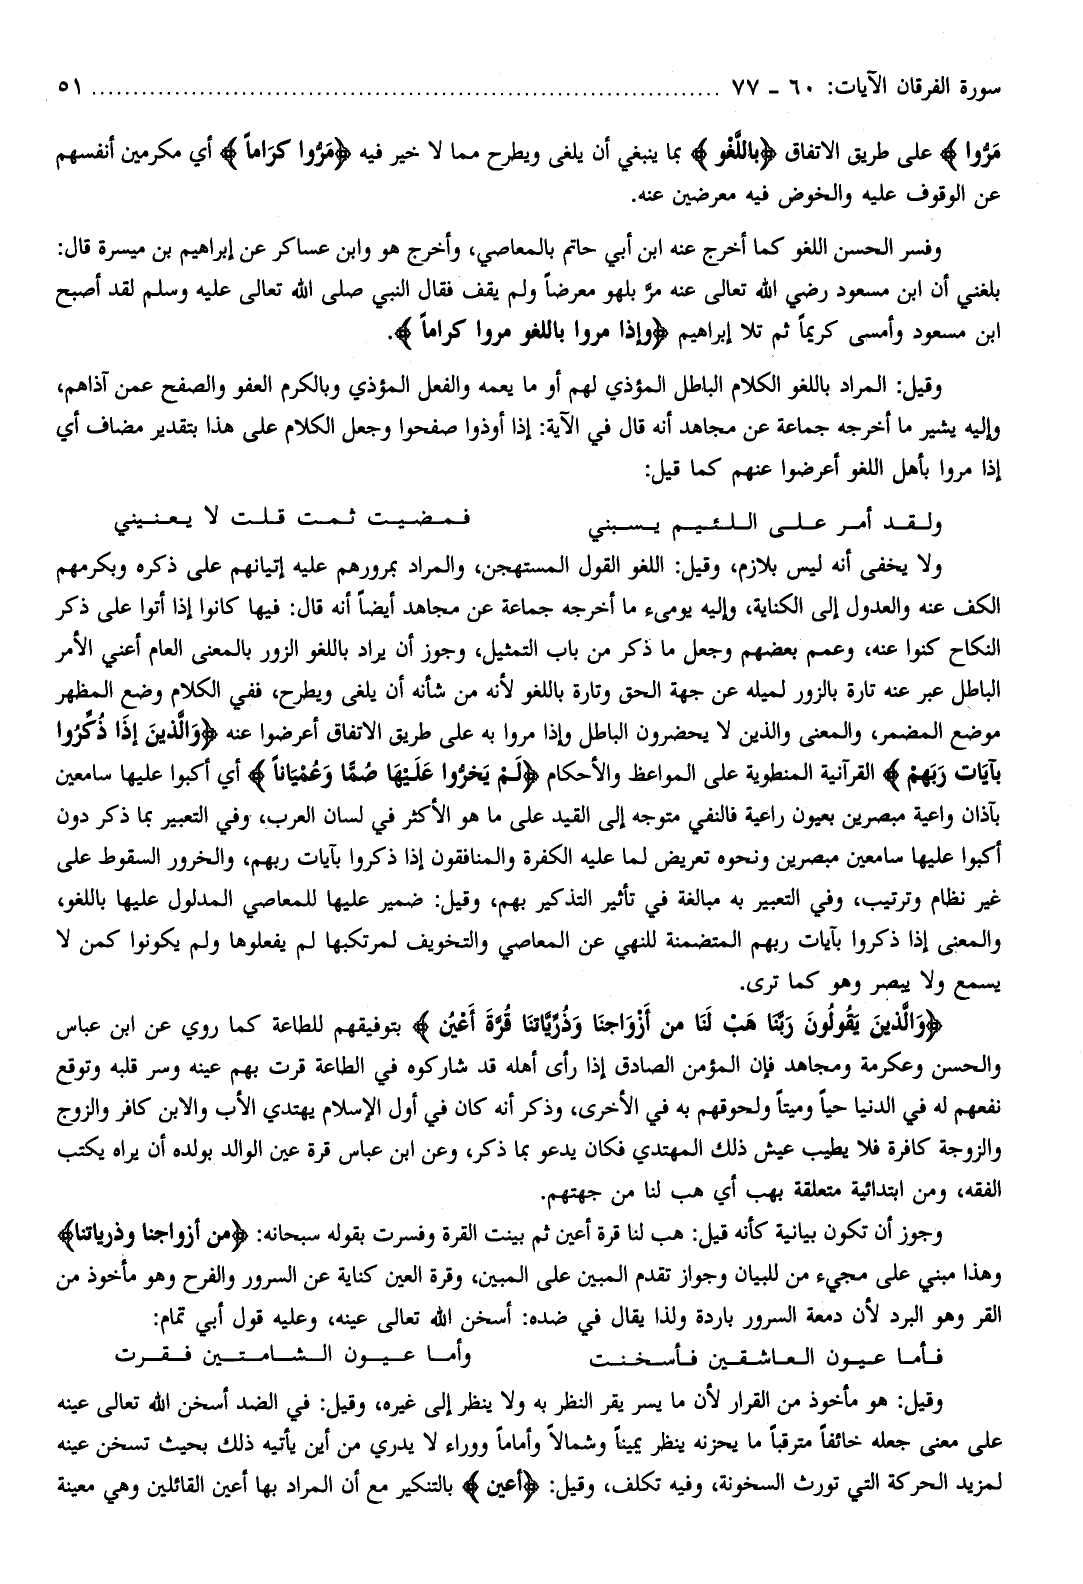 سورة الفرقان الآيات: ٦٠ ـ ٧٧ ........................................................................... ٥١
مَرُّوا ﴾ على طريق الاتفاق ﴿باللَّغْو ﴾ بما ينبغي أن يلغى ويطرح مما لا خير فيه ﴿مَرُّوا كرَاماً ﴾ أي مكرمين أنفسهم
عن الوقوف عليه والخوض فيه معرضين عنه.
وفسر الحسن اللغو كما أخرج عنه ابن أبي حاتم بالمعاصي، وأخرج هو وابن عساكر عن إبراهيم بن ميسرة قال:
بلغني أن ابن مسعود رضي الله تعالى عنه مرَّ بلهو معرضاً ولم يقف فقال النبي صلى الله تعالى عليه وسلم لقد أصبح
ابن مسعود وأمسى كريماً ثم تلا إبراهيم ﴿وإذا مروا باللغو مروا كراماً ﴾.
وقيل: المراد باللغو الكلام الباطل المؤذي لهم أو ما يعمه والفعل المؤذي وبالكرم العفو والصفح عمن آذاهم،
وإليه يشير ما أخرجه جماعة عن مجاهد أنه قال في الآية: إذا أوذوا صفحوا وجعل الكلام على هذا بتقدير مضاف أي
إذا مروا بأهل اللغو أعرضوا عنهم كما قيل:
ولـقـد أمـر عـلـى الـلـئـيـم يـسـبـني فـمـضـيـت ثـمـت قـلـت لا يـعـنـيـني
ولا يخفى أنه ليس بلازم، وقيل: اللغو القول المستهجن، والمراد بمرورهم عليه إتيانهم على ذكره وبكرمهم
الكف عنه والعدول إلى الكناية، وإليه يومىء ما أخرجه جماعة عن مجاهد أيضاً أنه قال: فيها كانوا إذا أتوا على ذكر
النكاح كنوا عنه، وعمم بعضهم وجعل ما ذكر من باب التمثيل، وجوز أن يراد باللغو الزور بالمعنى العام أعني الأمر
الباطل عبر عنه تارة بالزور لميله عن جهة الحق وتارة باللغو لأنه من شأنه أن يلغى ويطرح، ففي الكلام وضع المظهر
موضع المضمر، والمعنى والذين لا يحضرون الباطل وإذا مروا به على طريق الاتفاق أعرضوا عنه ﴿وَالَّذينَ إذَا ذُكِّرُوا
بآيَات رَبِهمْ ﴾ القرآنية المنطوية على المواعظ والأحكام ﴿لَـمْ يَخرُّوا عَلَـيْهَا صُمًّا وَعُمْيَاناً ﴾ أي أكبوا عليها سامعين
بآذان واعية مبصرين بعيون راعية فالنفي متوجه إلى القيد على ما هو الأكثر في لسان العرب، وفي التعبير بما ذكر دون
أكبوا عليها سامعين مبصرين ونحوه تعريض لما عليه الكفرة والمنافقون إذا ذكروا بآيات ربهم، والخرور السقوط على
غير نظام وترتيب، وفي التعبير به مبالغة في تأثير التذكير بهم، وقيل: ضمير عليها للمعاصي المدلول عليها باللغو،
والمعنى إذا ذكروا بآيات ربهم المتضمنة للنهي عن المعاصي والتخويف لمرتكبها لم يفعلوها ولم يكونوا كمن لا
يسمع ولا يبصر وهو كما ترى.
﴿وَالَّذينَ يَقُولُونَ رَبَّنَا هَبْ لَنَا من أَزْوَاجنَا وَذُرِّيَّاتنَا قُرَّةَ أَعْيُن ﴾ بتوفيقهم للطاعة كما روي عن ابن عباس
والحسن وعكرمة ومجاهد فإن المؤمن الصادق إذا رأى أهله قد شاركوه في الطاعة قرت بهم عينه وسر قلبه وتوقع
نفعهم له في الدنيا حياً وميتاً ولحوقهم به في الأخرى، وذكر أنه كان في أول الإسلام يهتدي الأب والابن كافر والزوج
والزوجة كافرة فلا يطيب عيش ذلك المهتدي فكان يدعو بما ذكر، وعن ابن عباس قرة عين الوالد بولده أن يراه يكتب
الفقه، ومن ابتدائية متعلقة بهب أي هب لنا من جهتهم.
وجوز أن تكون بيانية كأنه قيل: هب لنا قرة أعين ثم بينت القرة وفسرت بقوله سبحانه: ﴿من أزواجنا وذرياتنا﴾
وهذا مبني على مجيء من للبيان وجواز تقدم المبين على المبين، وقرة العين كناية عن السرور والفرح وهو مأخوذ من
القر وهو البرد لأن دمعة السرور باردة ولذا يقال في ضده: أسخن الله تعالى عينه، وعليه قول أبي تمام:
فـأمـا عـيـون العـاشـقـين فـأسـخـنـت وأمـا عـيـون الـشـامـتـين فـقـرت
وقيل: هو مأخوذ من القرار لأن ما يسر يقر النظر به ولا ينظر إلى غيره، وقيل: في الضد أسخن الله تعالى عينه
على معنى جعله خائفاً مترقباً ما يحزنه ينظر يميناً وشمالاً وأماماً ووراء لا يدري من أين يأتيه ذلك بحيث تسخن عينه
لمزيد الحركة التي تورث السخونة، وفيه تكلف، وقيل: ﴿أعين ﴾ بالتنكير مع أن المراد بها أعين القائلين وهي معينة